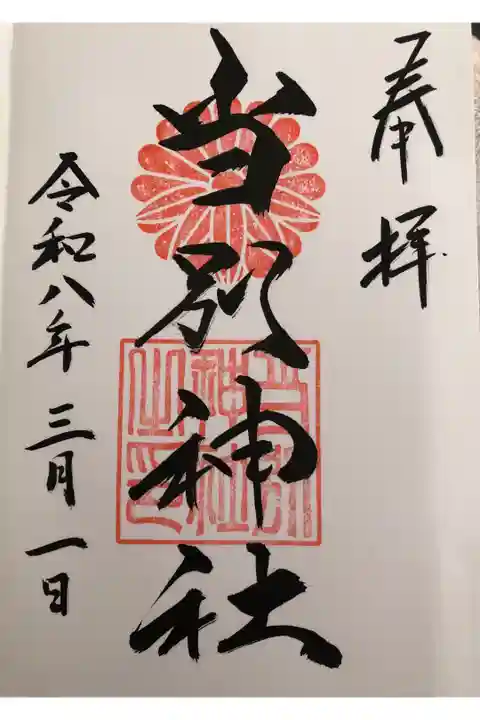 奉拝
当別神社
当別
神社
之印
令和八年三月一日